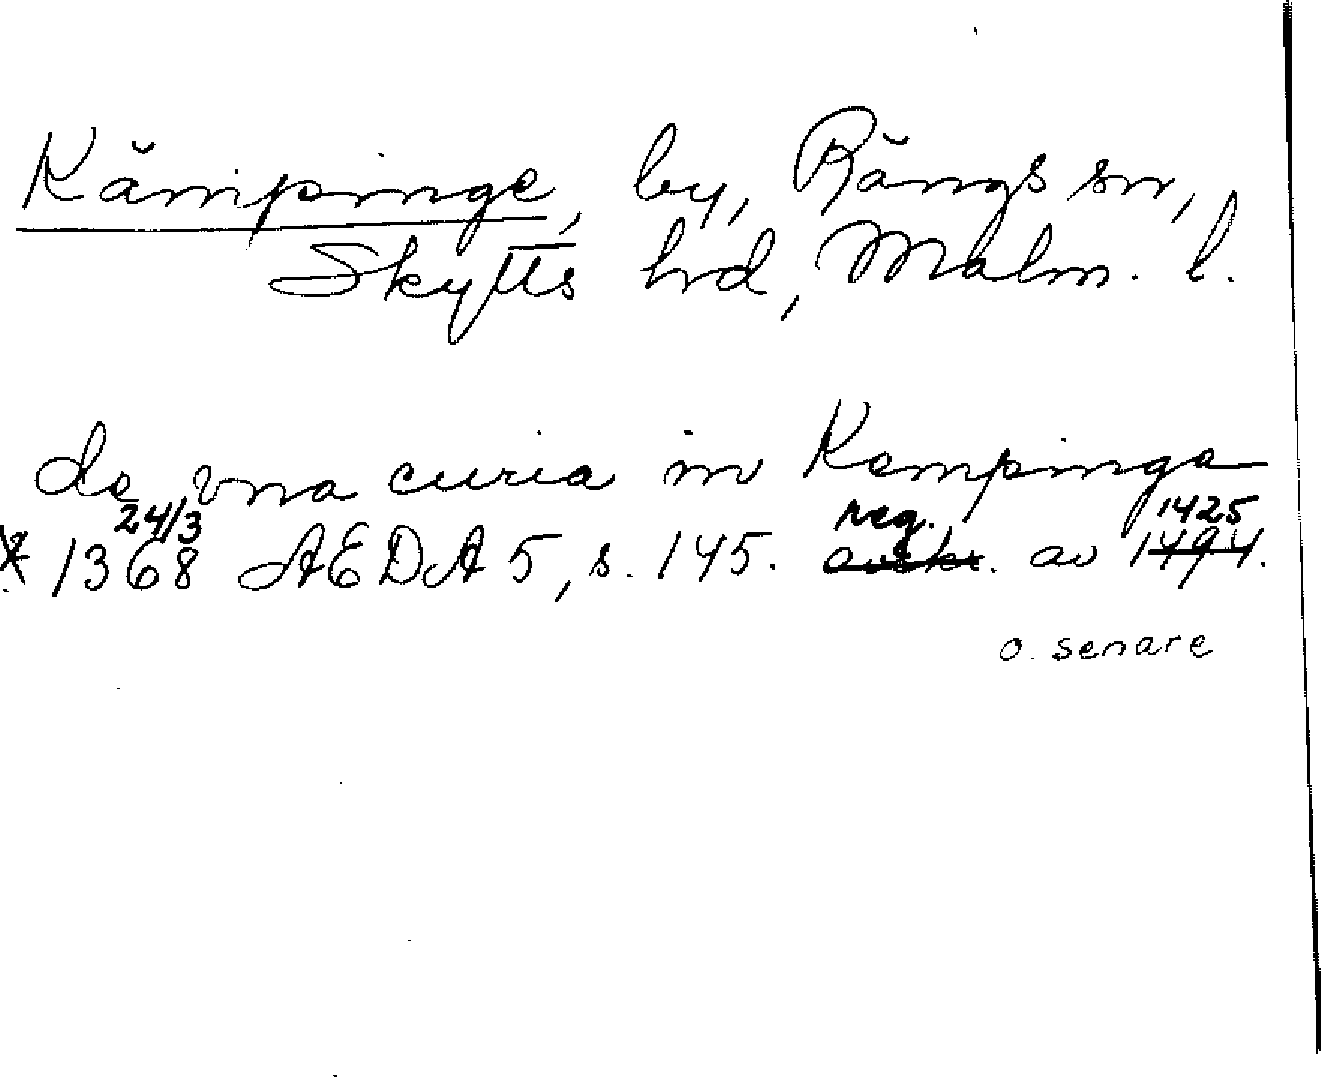 Kämpinge, by, Rängs sn,
Skytts hd, Malm. l.
de vna curia in Kempinge
24/3 reg. 1425
* 1368 AEDA 5, s. 145. avskr. av 1494.
o. senare